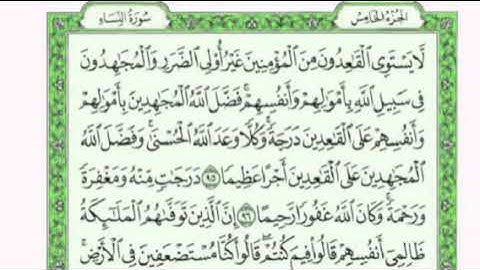 الجزء الخامس
سورة النساء
لَّا يَسْتَوِى الْقَٰعِدُونَ مِنَ الْمُؤْمِنِينَ غَيْرُ أُو۟لِى الضَّرَرِ وَالْمُجَٰهِدُونَ
فِى سَبِيلِ اللَّهِ بِأَمْوَٰلِهِمْ وَأَنفُسِهِمْ ۚ فَضَّلَ اللَّهُ الْمُجَٰهِدِينَ بِأَمْوَٰلِهِمْ
وَأَنفُسِهِمْ عَلَى الْقَٰعِدِينَ دَرَجَةً ۚ وَكُلًّا وَعَدَ اللَّهُ الْحُسْنَىٰ ۚ وَفَضَّلَ اللَّهُ
الْمُجَٰهِدِينَ عَلَى الْقَٰعِدِينَ أَجْرًا عَظِيمًا ٩٥ دَرَجَٰتٍ مِّنْهُ وَمَغْفِرَةً
وَرَحْمَةً ۚ وَكَانَ اللَّهُ غَفُورًا رَّحِيمًا ٩٦ إِنَّ الَّذِينَ تَوَفَّىٰهُمُ الْمَلَٰٓئِكَةُ
ظَالِمِىٓ أَنفُسِهِمْ قَالُوا۟ فِيمَ كُنتُمْ ۖ قَالُوا۟ كُنَّا مُسْتَضْعَفِينَ فِى الْأَرْضِ ۚ